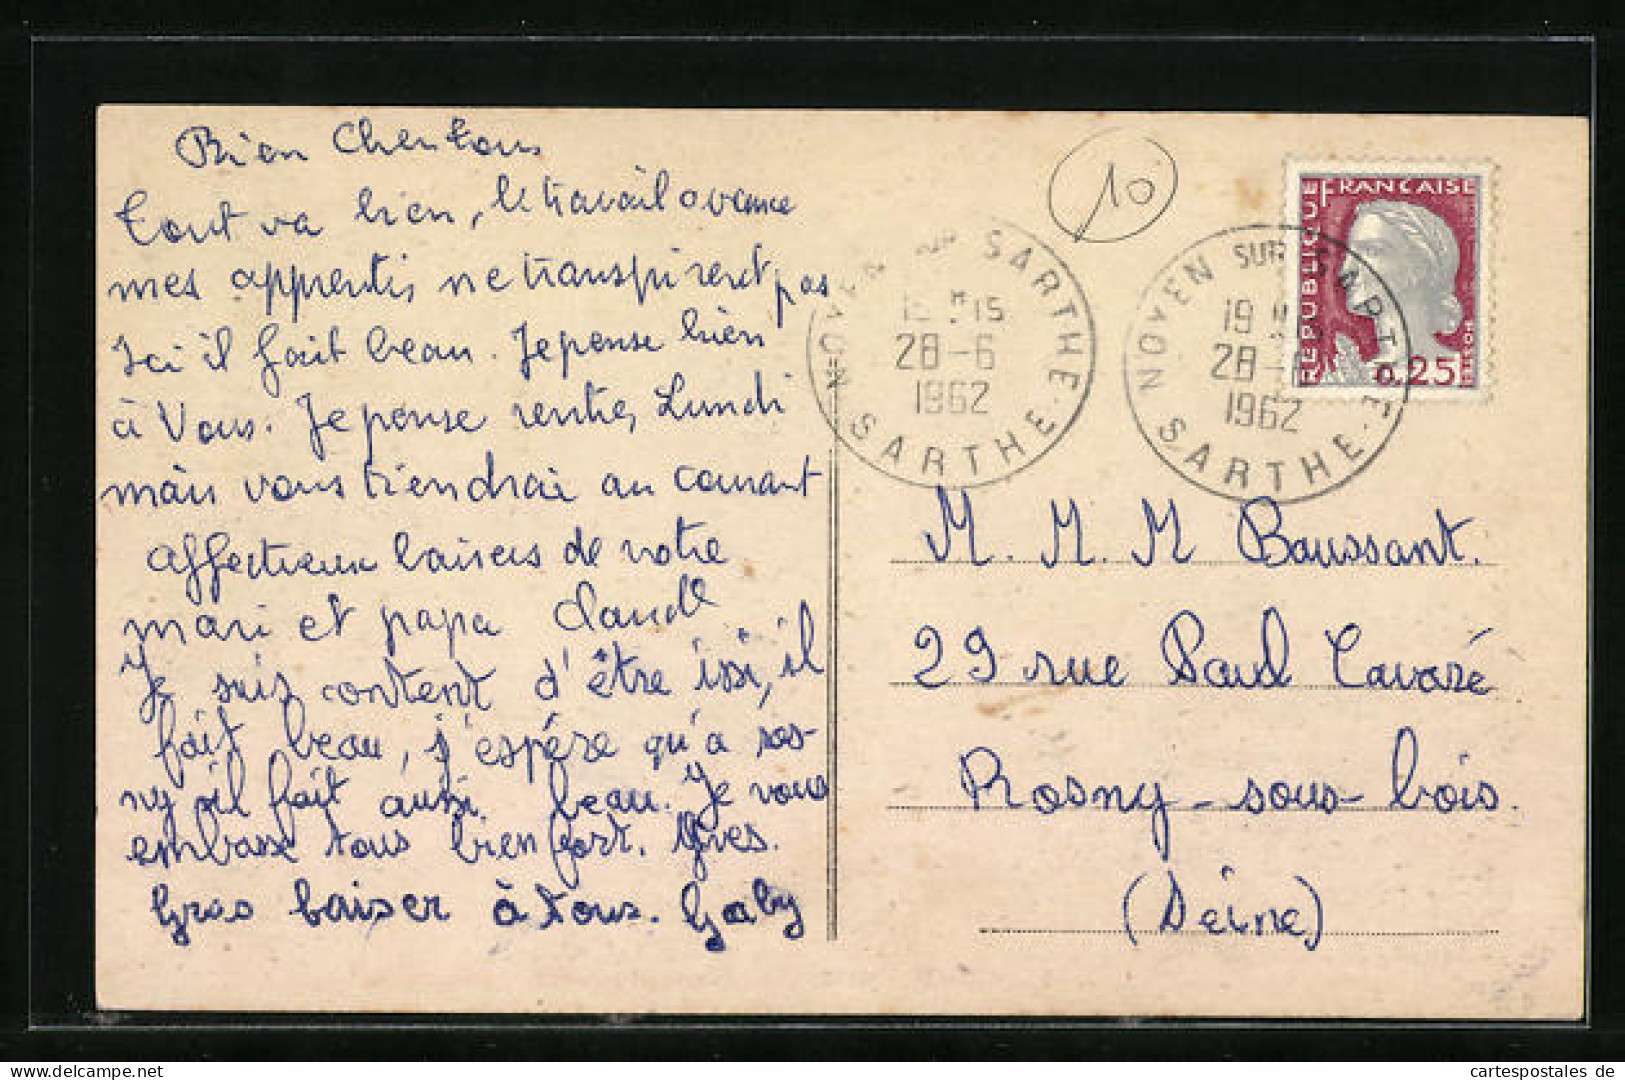 Bien Chers tous
Tout va bien, le travail avance
mes apprentis ne transpirent pas
Ici il fait beau. Je pense bien
à Vous. Je pense rentrer Lundi
mais vous tiendrai au courant
affectueux baisers de votre
mari et papa Claude
Je suis content d'être issi, il
fait beau, j'espére qu'a ros-
ny il fait aussi beau. Je vous
embasse tous bien fort. Yves.
Gros baiser à tous. Gaby
10
NOYEN SUR SARTHE
15
28-6
1962
SARTHE
NOYEN SUR SARTHE
19
28-6
1962
SARTHE
REPUBLIQUE FRANCAISE
0,25
M. M. M Baussant.
29 rue Paul Cavaré
Rosny-sous-bois.
(Seine)
cartespostales de